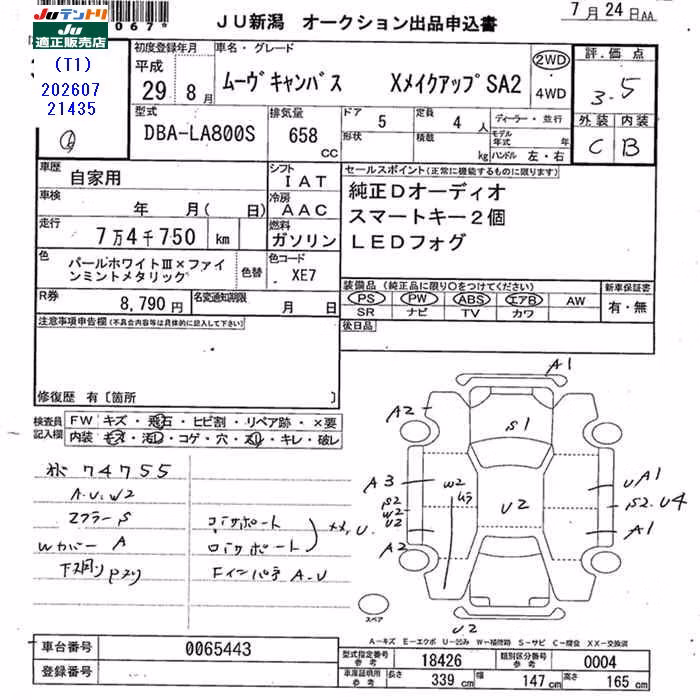 JUテントリ
Ju
適正販売店
(T1)
202607
21435
067*
JU新潟 オークション出品申込書
7月24日AA
初度登録年月
平成
29年8月
車名・グレード
ムーヴキャンバス XメイクアップSA2
2WD
・
4WD
評価点
3.5
外装 内装
C B
型式
DBA-LA800S
排気量
658
cc
ドア
5
形状
定員
4人
積載
kg
ディーラー・並行
モデル年式 年
ハンドル 左・右
車歴
自家用
シフト
IAT
車検
年 月( 日)
冷房
AAC
走行
7万4千750 km
燃料
ガソリン
色
パールホワイトⅢ×ファインミントメタリック
色替
色コード
XE7
R券
8,790円
名変通知期限
月 日
セールスポイント(正常に機能するものに限ります)
純正Dオーディオ
スマートキー2個
LEDフォグ
装備品(純正品に限り○をつけてください)
PS PW ABS エアB AW
SR ナビ TV カワ
新車保証書
有・無
後日品
注意事項申告欄(不具合内容等は具体的に記入して下さい)
修復歴 有〔箇所 〕
検査員記入欄
FW キズ・飛石・ヒビ割・リペア跡・×要
内装 キズ・汚れ・コゲ・穴・スレ・キレ・破レ
74755
A.U.W2
マフラーS
Wカバー A
下回りPスリ
コアサポート
ロアサポート
××,U.
Fインパネ A.U
A1
A2
S1
A3
S2
W2
U2
A2
W2
ムラ
U2
UA1
S2.U4
A1
U2
スペア
A-キズ E-エクボ U-凹み W-補修跡 S-サビ C-腐食 XX-交換済
車台番号
0065443
登録番号
型式指定番号
参考
18426
類別区分番号
参考
0004
車庫証明用
参考
長さ
339 cm
幅
147 cm
高さ
165 cm